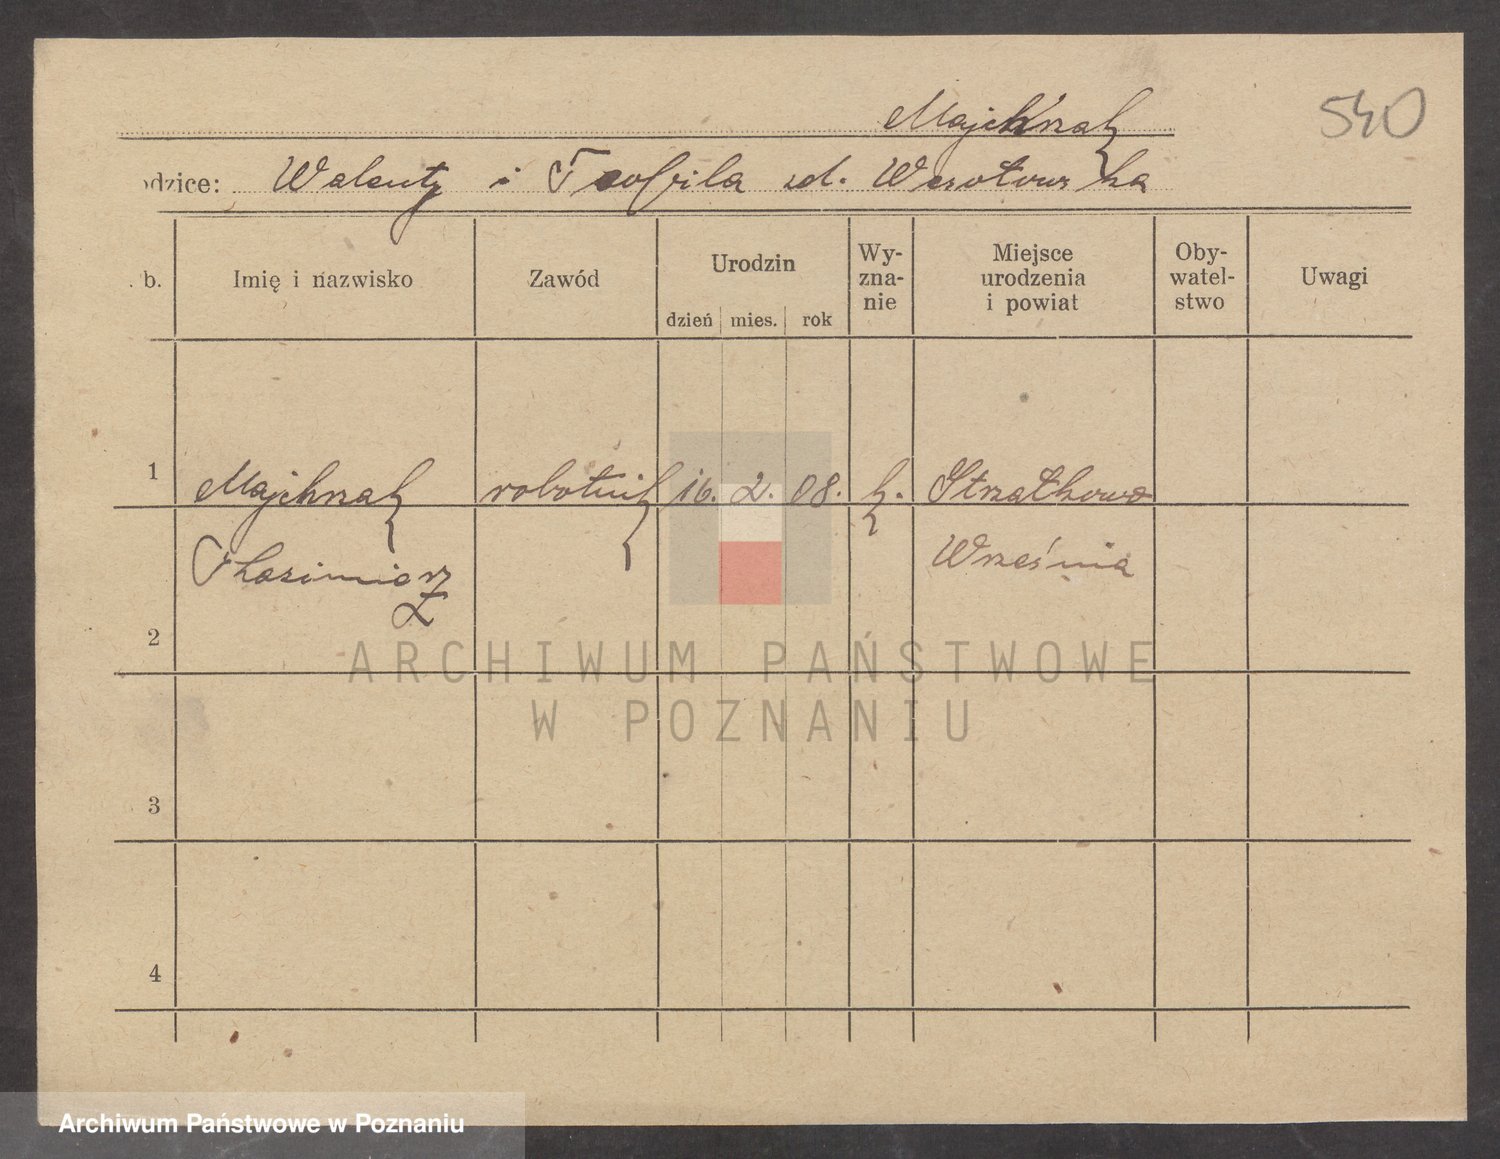 Majchrzak
540
odzice: Walenty i Teofila zd. Wesołowska
. b.
Imię i nazwisko
Zawód
Urodzin
dzień mies. rok
Wy-
zna-
nie
Miejsce
urodzenia
i powiat
Oby-
watel-
stwo
Uwagi
1 Majchrzak robotnik 16. 2. 08. k. Strzałkowo
Kazimierz Września
2
3
4
ARCHIWUM PAŃSTWOWE
W POZNANIU
Archiwum Państwowe w Poznaniu